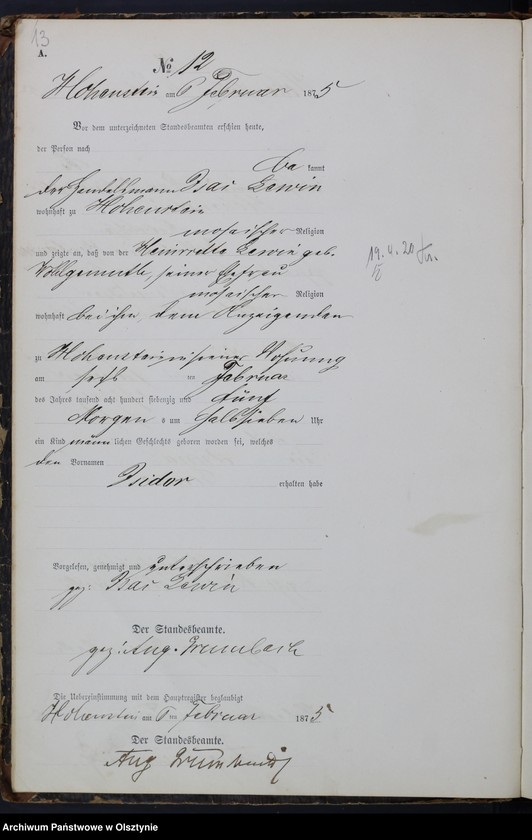 13
A.
№ 12
Hohenstein am 6 Februar 1875
Vor dem unterzeichneten Standesbeamten erschien heute,
der Person nach
be kannt
der Handelsmann Isai Lewin
wohnhaft zu Hohenstein
mosaischer Religion
und zeigte an, daß von der Henriette Lewin geb.
Wohlgemuth, seiner Ehefrau
mosaischer Religion
wohnhaft bei ihm, dem Anzeigenden
zu Hohenstein in seiner Wohnung
am sechs ten Februar
des Jahres tausend acht hundert siebenzig und fünf
Morgen s um halb sieben Uhr
ein Kind männ lichen Geschlechts geboren worden sei, welches
den Vornamen
Isidor erhalten habe
Vorgelesen, genehmigt und unterschrieben
gez: Isai Lewin
Der Standesbeamte.
gez: Aug. Grumbach
Die Uebereinstimmung mit dem Hauptregister beglaubigt
Hohenstein am 6 ten Februar 1875
Der Standesbeamte.
Aug Grumbach
Archiwum Państwowe w Olsztynie